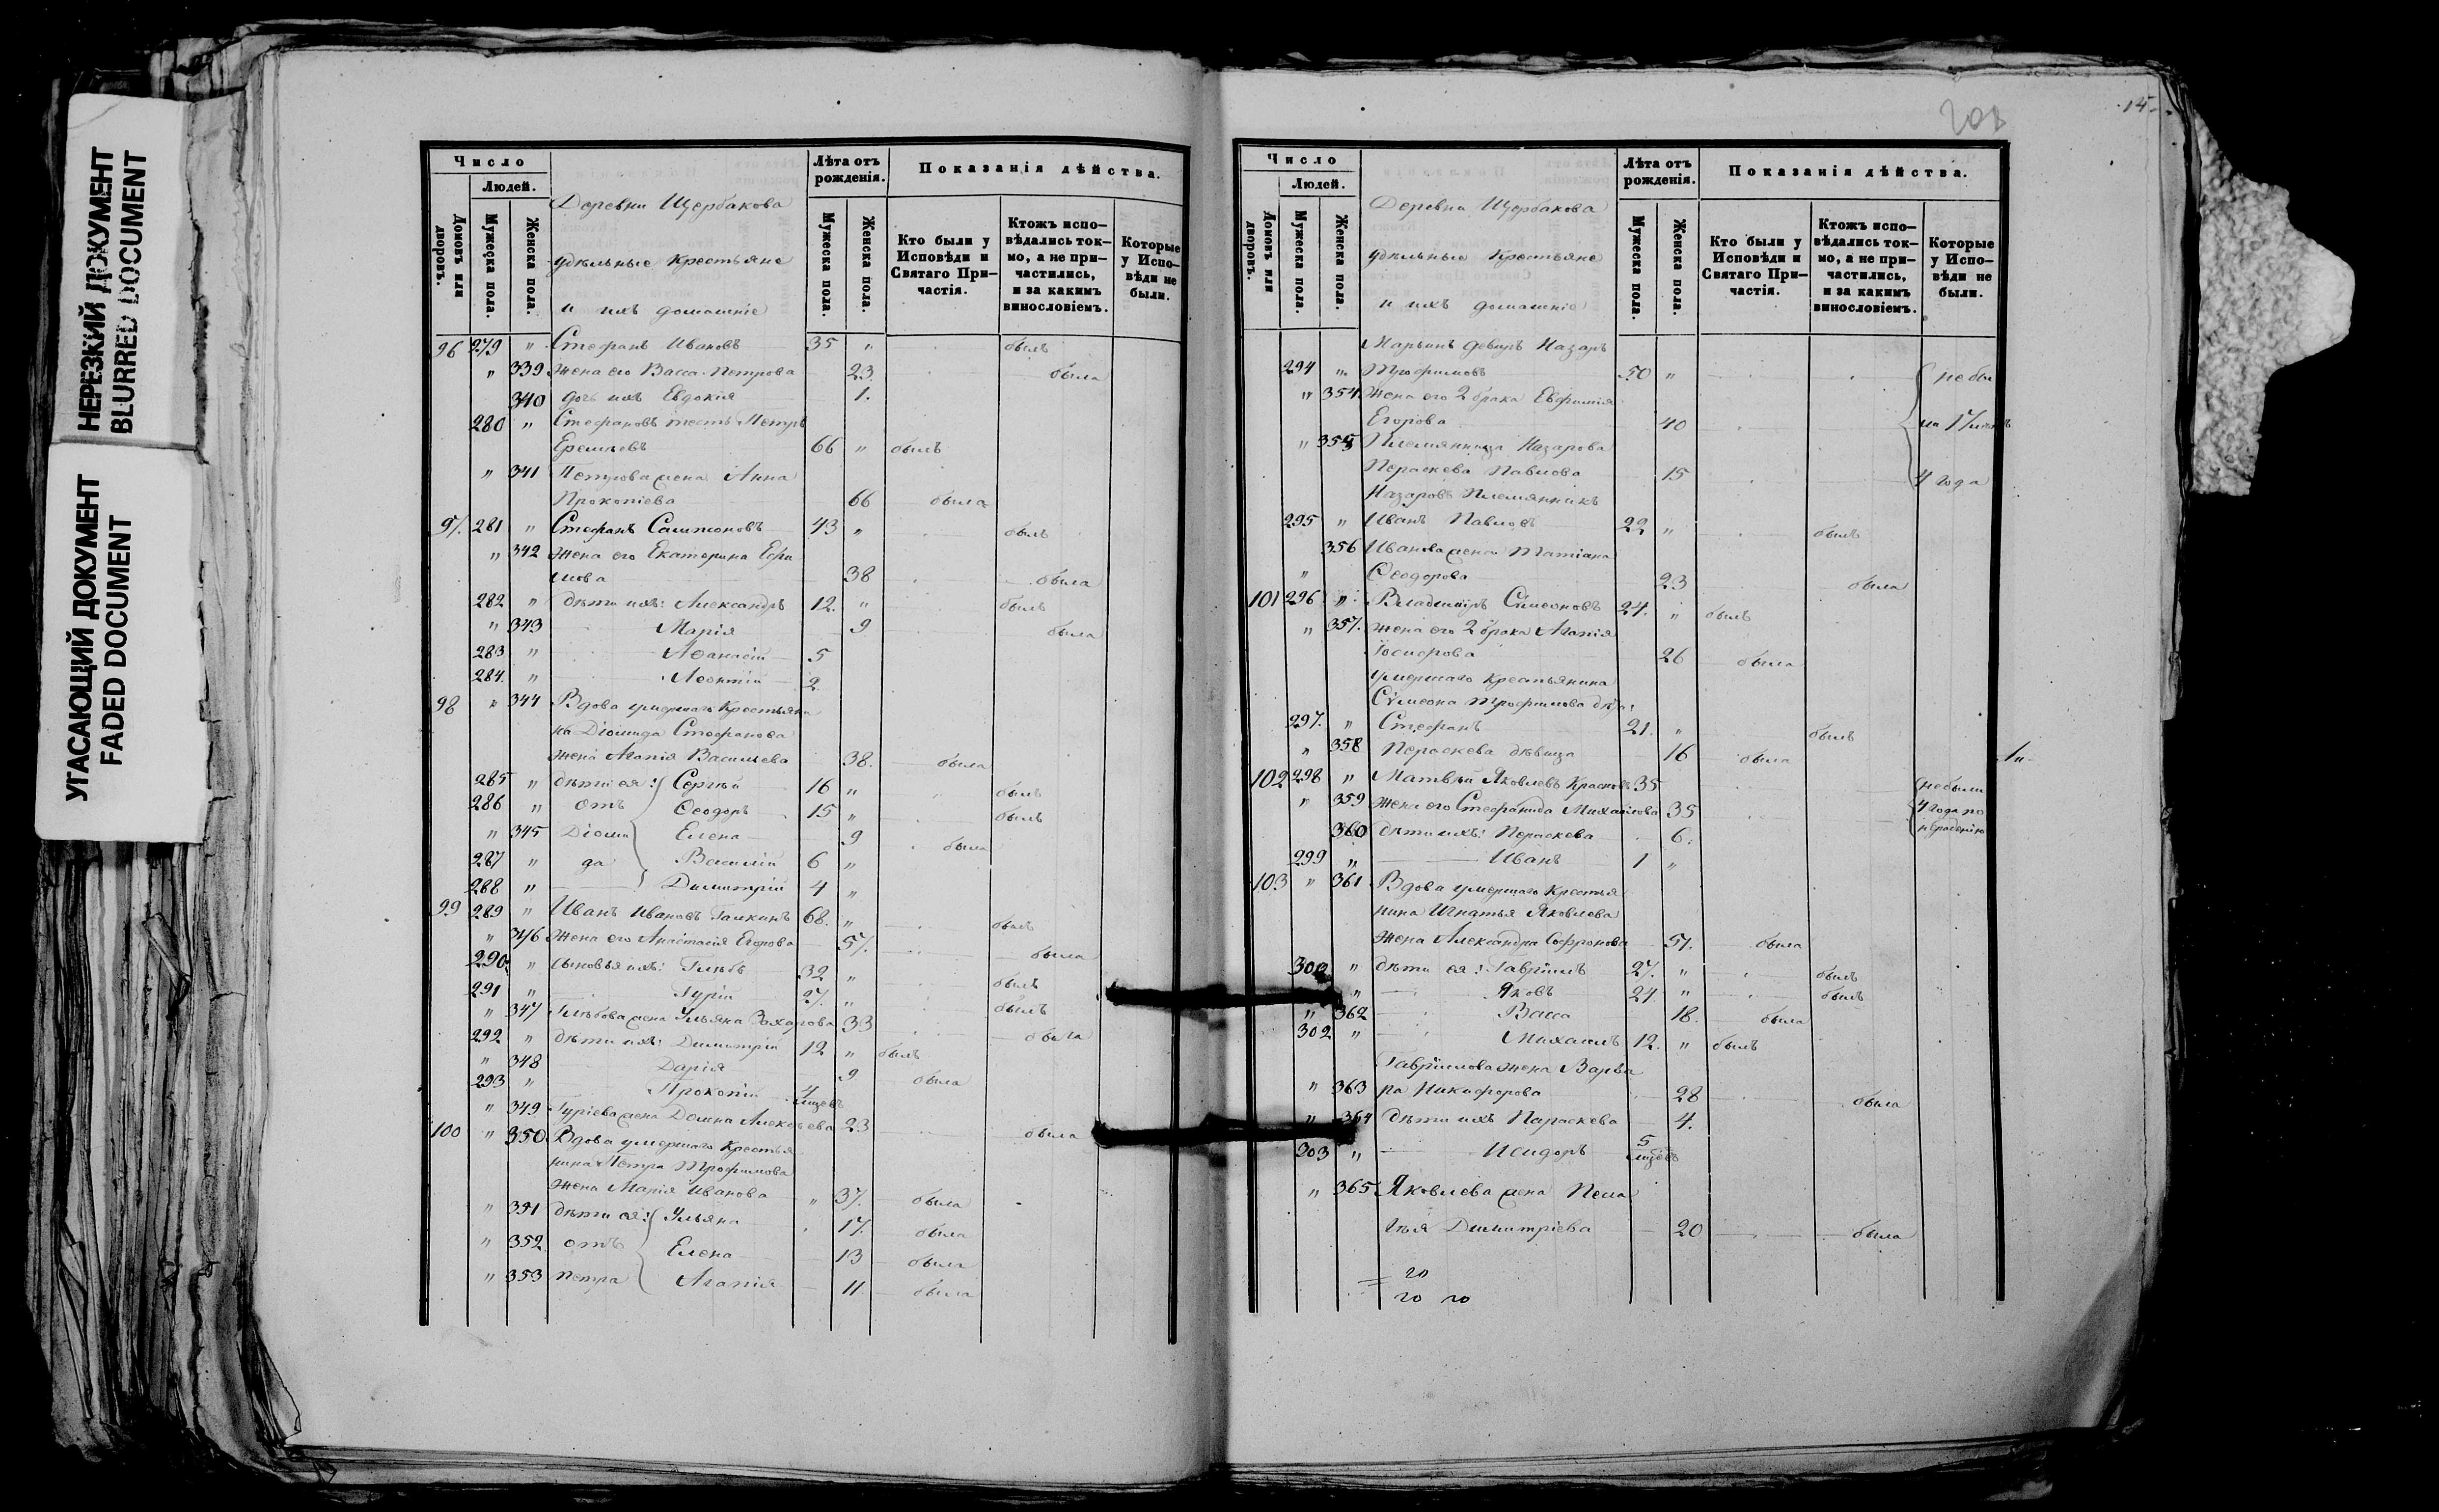 НЕРЕЗКИЙ ДОКУМЕНТ
BLURRED DOCUMENT
УГАСАЮЩИЙ ДОКУМЕНТ
FADED DOCUMENT
Число
Людей.
Домовъ или дворовъ.
Мужеска пола.
Женска пола.
Деревни Щербакова
удѣльные крестьяне
и ихъ домашніе
Лѣта отъ рожденія.
Мужеска пола.
Женска пола.
Показанія дѣйства.
Кто были у Исповѣди и Святаго Причастія.
Ктожъ исповѣдались токмо, а не причастились, и за какимъ винословіемъ.
Которые у Исповѣди не были.
96 279 " Стефанъ Ивановъ 35 " былъ
" 339 Жена его Васса Петрова 23. была
340 дочь ихъ Евдокія 1.
280 " Стефановъ тесть Петръ
66 " былъ
" 341 Петрова жена Анна
Прокопіева 66 была
97. 281 " Стефанъ Сампсоновъ 43 " былъ
" 342 жена его Екатерина Ефи
мова 38 была
282 " дѣти ихъ: Александръ 12. " былъ
" 343 Марія 9 была
283 " Аѳанасій 5
284. " Леонтій 2
98 " 344 Вдова умершаго крестьяни
на Діомида Стефанова
жена Агапія Васильева 38. была
285 " дѣти ея: Сергѣй 16 " былъ
286 " отъ Ѳеодоръ 15 " былъ
" 345 Діоми Елена 9 была
287 " да Василій 6 "
288 " Димитрій 4 "
99 289 " Иванъ Ивановъ Галкинъ 68. " былъ
" 346 Жена его Анастасія Егорова 57. была
290. " сыновья ихъ: Глѣбъ 32 " былъ
291 " Гурій 27. " былъ
" 347 Глѣбова жена Ульяна Захарова 33 была
292 " дѣти ихъ: Димитрій 12 " былъ
" 348 Дарія 9 была
293 " Прокопій 4 мцовъ
" 349 Гуріева жена Домна Алексѣева 23 была
100 " 350 Вдова умершаго крестья
нина Петра Трофимова
жена Марія Иванова " 37. была
" 351 дѣти ея: Ульяна 17. была
" 352 отъ Елена 13 была
" 353 Петра Агапія 11. была
201
15.
Число
Людей.
Домовъ или дворовъ.
Мужеска пола.
Женска пола.
Деревни Щербакова
удѣльные крестьяне
и ихъ домашніе
Лѣта отъ рожденія.
Мужеска пола.
Женска пола.
Показанія дѣйства.
Кто были у Исповѣди и Святаго Причастія.
Ктожъ исповѣдались токмо, а не причастились, и за какимъ винословіемъ.
Которые у Исповѣди не были.
Марьинъ деверь Назаръ
294 " Трофимовъ 50 " не бы
" 354. жена его 2 брака Евфимія
Егорова 40
" 355 Племянница Назарова
Параскева Павлова 15 4 года
Назаровъ племянникъ
295 " Иванъ Павловъ 22 " былъ
356 Иванова жена Татіана
" Ѳеодорова 23 была
101 296 " Владиміръ Сѵмеоновъ 24. " былъ
" 357. жена его 2 брака Агапія
Іосифова 26 была
умершаго крестьянина
Сѵмеона Трофимова дѣти:
297. " Стефанъ 21. " былъ
" 358 Параскева дѣвица 16 была
102 298 " Матвѣй Яковлевъ Красновъ 35 не были
" 359 жена его Стефанида Михайлова 35 4 года по
360 дѣти ихъ: Параскева 6. нерадѣнію
299 " Иванъ 1 "
103 " 361 Вдова умершаго крестья
нина Игнатья Яковлева
жена Александра Софронова 57. была
300 " дѣти ея: Гавріилъ 27. " былъ
" Яковъ 24. " былъ
" 362 Васса 18. была
302 " Михаилъ 12. " былъ
Гавріилова жена Варва
" 363 ра Никифорова 28 была
" 364 дѣти ихъ Параскева 4.
303 " Исидоръ 5 мцовъ
" 365 Яковлева жена Пела
гѣя Димитріева 20 была
20
20 20